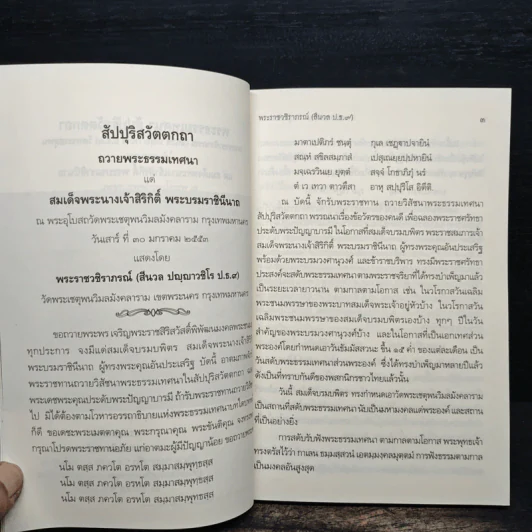 สัปปุริสวัตตกถา
ถวายพระธรรมเทศนา
แด่
สมเด็จพระนางเจ้าสิริกิติ์ พระบรมราชินีนาถ
ณ พระอุโบสถวัดพระเชตุพนวิมลมังคลาราม กรุงเทพมหานคร
วันเสาร์ ที่ ๓๐ มกราคม ๒๕๕๓
แสดงโดย
พระราชวชิราภรณ์ (สีนวล ปญฺญาวชิโร ป.ธ.๙)
วัดพระเชตุพนวิมลมังคลาราม เขตพระนคร กรุงเทพมหานคร
ขอถวายพระพร เจริญพระราชสิริสวัสดิ์พิพัฒนมงคลพระชนม
ทุกประการ จงมีแด่สมเด็จบรมบพิตร สมเด็จพระนางเจ้าสิริกิ
พระบรมราชินีนาถ ผู้ทรงพระคุณอันประเสริฐ บัดนี้ อาตมภาพ
พระราชทานถวายวิสัชนาพระธรรมเทศนาในสัปปุริสวัตตกถา
พระเดชพระคุณประดับพระปัญญาบารมี ถ้ารับพระราชทานถวายวิ
ไป มิได้ต้องตามโวหารอรรถาธิบายแห่งพระธรรมเทศนาบทใด
กิดี ขอเดชะพระเมตตาคุณ พระกรุณาคุณ พระขันติคุณ
กรุณาโปรดพระราชทานอภัย แก่อาตมะผู้มีปัญญาน้อย ขอถวายพระพร
นโม ตสฺส ภควโต อรหโต สมฺมาสมฺพุทฺธสฺส
นโม ตสฺส ภควโต อรหโต สมฺมาสมฺพุทฺธสฺส
นโม ตสฺส ภควโต อรหโต สมฺมาสมฺพุทฺธสฺส
พระราชวชิราภรณ์ (สีนวล ป.ธ.๙) ๓
มาตาเปติภรํ ชนฺตุํ กุเล เชฏฺฐาปจายินํ
สณฺหํ สขิลสมฺภาสํ เปสุเณยฺยปฺปหายินํ
มจฺเฉรวินเย ยุตฺตํ สจฺจํ โกธาภิภุํ นรํ
ตํ เว เทวา ตาวตึสา อาหุ สปฺปุริโส อิตีติ.
ณ บัดนี้ จักรับพระราชทาน ถวายวิสัชนาพระธรรมเทศนา
สัปปุริสวัตตกถา พรรณนาเรื่องข้อวัตรของคนดี เพื่อฉลองพระศรัทธา
ประดับพระปัญญาบารมี ในโอกาสที่สมเด็จบรมบพิตร พระราชสมภารเจ้า
สมเด็จพระนางเจ้าสิริกิติ์ พระบรมราชินีนาถ ผู้ทรงพระคุณอันประเสริฐ
พร้อมด้วยพระบรมวงศานุวงศ์ และข้าราชบริพาร ทรงมีพระราชศรัทธา
ประสงค์จะสดับพระธรรมเทศนาตามพระราชจริยาที่ได้ทรงบำเพ็ญมาแล้ว
เป็นระยะเวลายาวนาน ตามกาลตามโอกาส เช่น ในวโรกาสวันเฉลิม
พระชนมพรรษาของพระบาทสมเด็จพระเจ้าอยู่หัวบ้าง ในวโรกาสวัน
เฉลิมพระชนมพรรษาของสมเด็จบรมบพิตรเองบ้าง ทุกๆ ปีในวัน
สำคัญของพระบรมวงศานุวงศ์บ้าง และในโอกาสที่เป็นเอกเทศส่วน
พระองค์โดยกำหนดเอาวันธัมมัสสวนะ ขึ้น ๑๕ ค่ำ ของแต่ละเดือน เป็น
วันสดับพระธรรมเทศนาส่วนพระองค์ ซึ่งได้ทรงบำเพ็ญมาหลายปีแล้ว
ดังเป็นที่ทราบกันดีของพสกนิกรชาวไทยแล้วนั้น
วันนี้ สมเด็จบรมบพิตร ทรงกำหนดเอาวัดพระเชตุพนวิมลมังคลาราม
เป็นสถานที่สดับพระธรรมเทศนา นับเป็นมหามงคลแด่พระองค์ และสถาน
ที่เป็นอย่างยิ่ง
การสดับรับฟังพระธรรมเทศนา ตามกาลตามโอกาส พระพุทธเจ้า
ทรงตรัสไว้ว่า กาเลน ธมฺมสฺสวนํ เอตมฺมงฺคลมุตฺตมํ การฟังธรรมตามกาล
เป็นมงคลอันสูงสุด